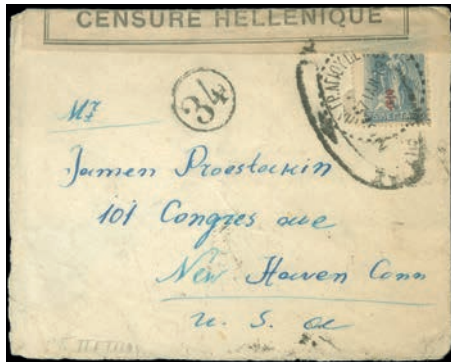 CENSURE HELLENIQUE
34
Mr
James Proestakin
101 Congres ave
New Haven Conn
U. S. a